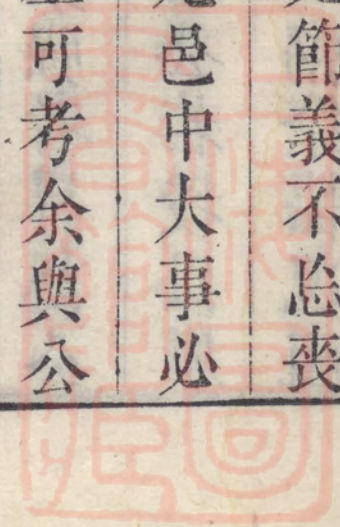 節義不㤀喪
邑中大事必
可考余與公